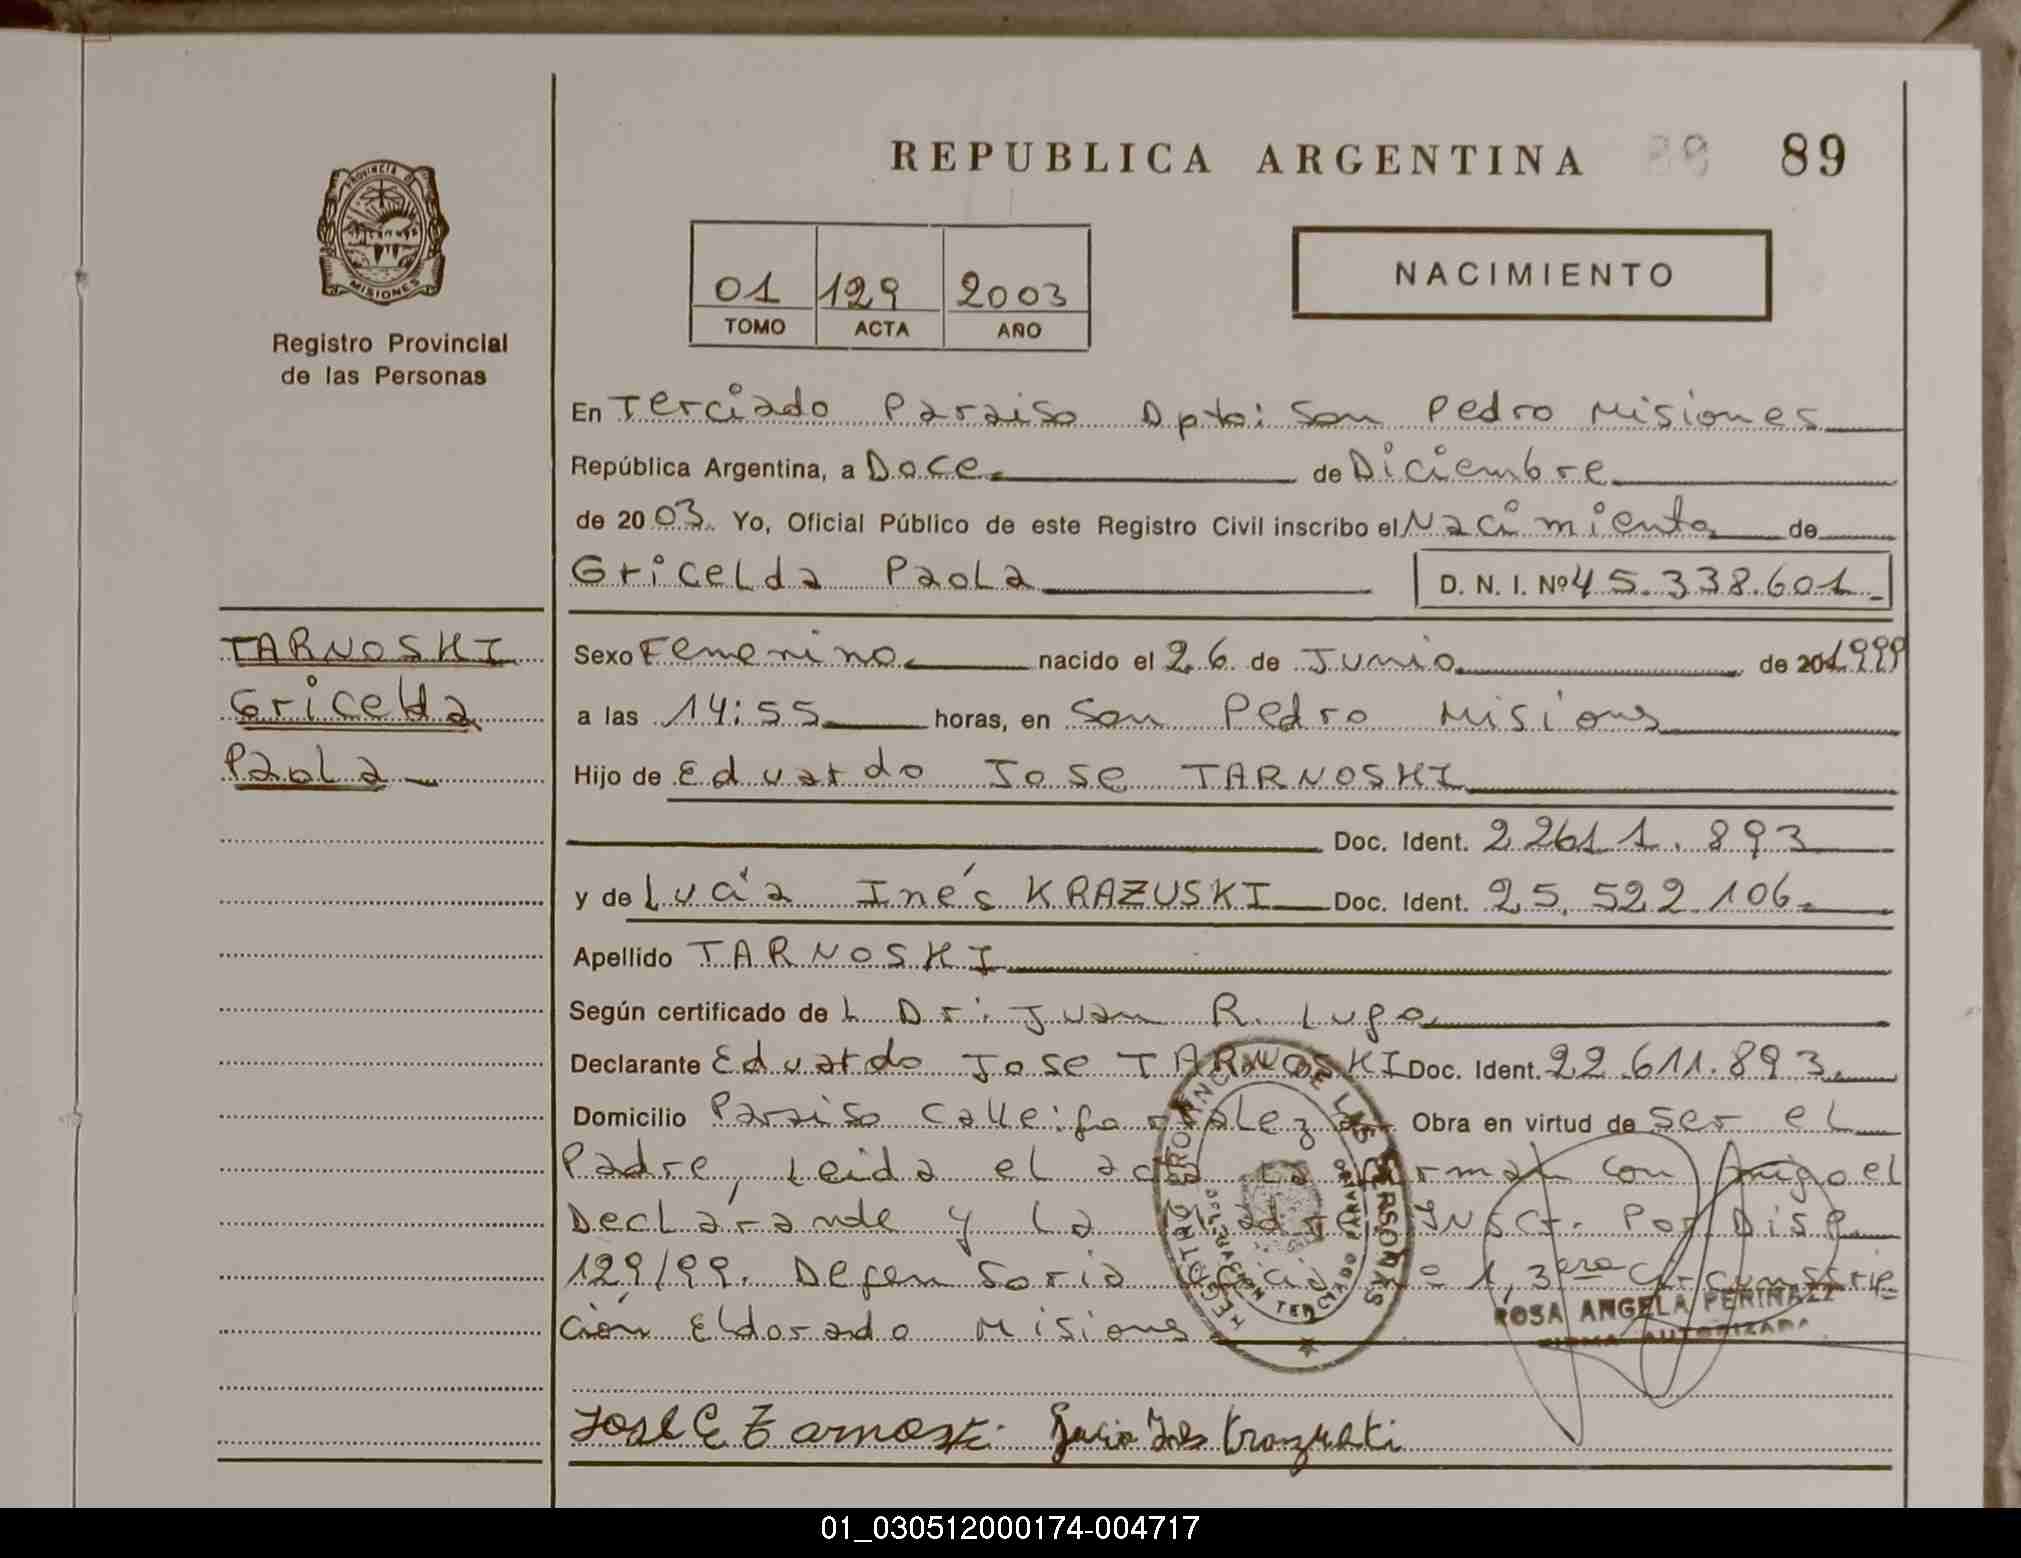 REPUBLICA ARGENTINA 89 89
PROVINCIA DE
MISIONES
Registro Provincial
de las Personas
01 129 2003
TOMO ACTA AÑO
NACIMIENTO
En Terciado Paraiso Dpto: San Pedro Misiones
República Argentina, a Doce de Diciembre
de 2003. Yo, Oficial Público de este Registro Civil inscribo el Nacimiento de
Gricelda Paola D. N. I. Nº 45.338.601
TARNOSKI
Gricelda
Paola
Sexo Femenino nacido el 26 de Junio de 1999
a las 14:55 horas, en San Pedro Misiones
Hijo de Eduardo Jose TARNOSKI
Doc. Ident. 22611.893
y de Lucía Inés KRAZUSKI Doc. Ident. 25.522.106
Apellido TARNOSKI
Según certificado de L Dr: Juan R. Lugo
Declarante Eduardo Jose TARNOSKI Doc. Ident. 22.611.893
Domicilio Paraiso Calle: Obra en virtud de ser el
Padre, Leida el acta La Firman con migo el
Declarande y La Madre Inscr. Por Disp.
129/99. Defensoria Oficial Nº 1, 3era Circunscrip-
ción Eldorado Misiones
REGISTRO PROVINCIAL DE LAS PERSONAS
DELEGACION TERCIADO PARAISO
ROSA ANGELA
FIRMA AUTORIZADA
José E Tarnoski Lucia Ines Krazuski
01_030512000174-004717